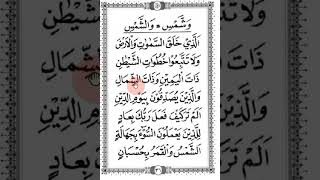 وَشَمْسٍ ٥ وَالشَّمْسِ
اَلَّذِيْ خَلَقَ السَّمٰوٰتِ وَالْاَرْضَ
وَلَا تَتَّبِعُوْا خُطُوٰتِ الشَّيْطٰنِ
ذَاتَ الْيَمِيْنِ وَذَاتَ الشِّمَالِ
وَالَّذِيْنَ يُصَدِّقُوْنَ بِيَوْمِ الدِّيْنِ
اَلَمْ تَرَ كَيْفَ فَعَلَ رَبُّكَ بِعَادٍ
لِلَّذِيْنَ يَعْمَلُوْنَ السُّوْٓءَ بِجَهَالَةٍ
اَلشَّمْسُ وَالْقَمَرُ بِحُسْبَانٍ